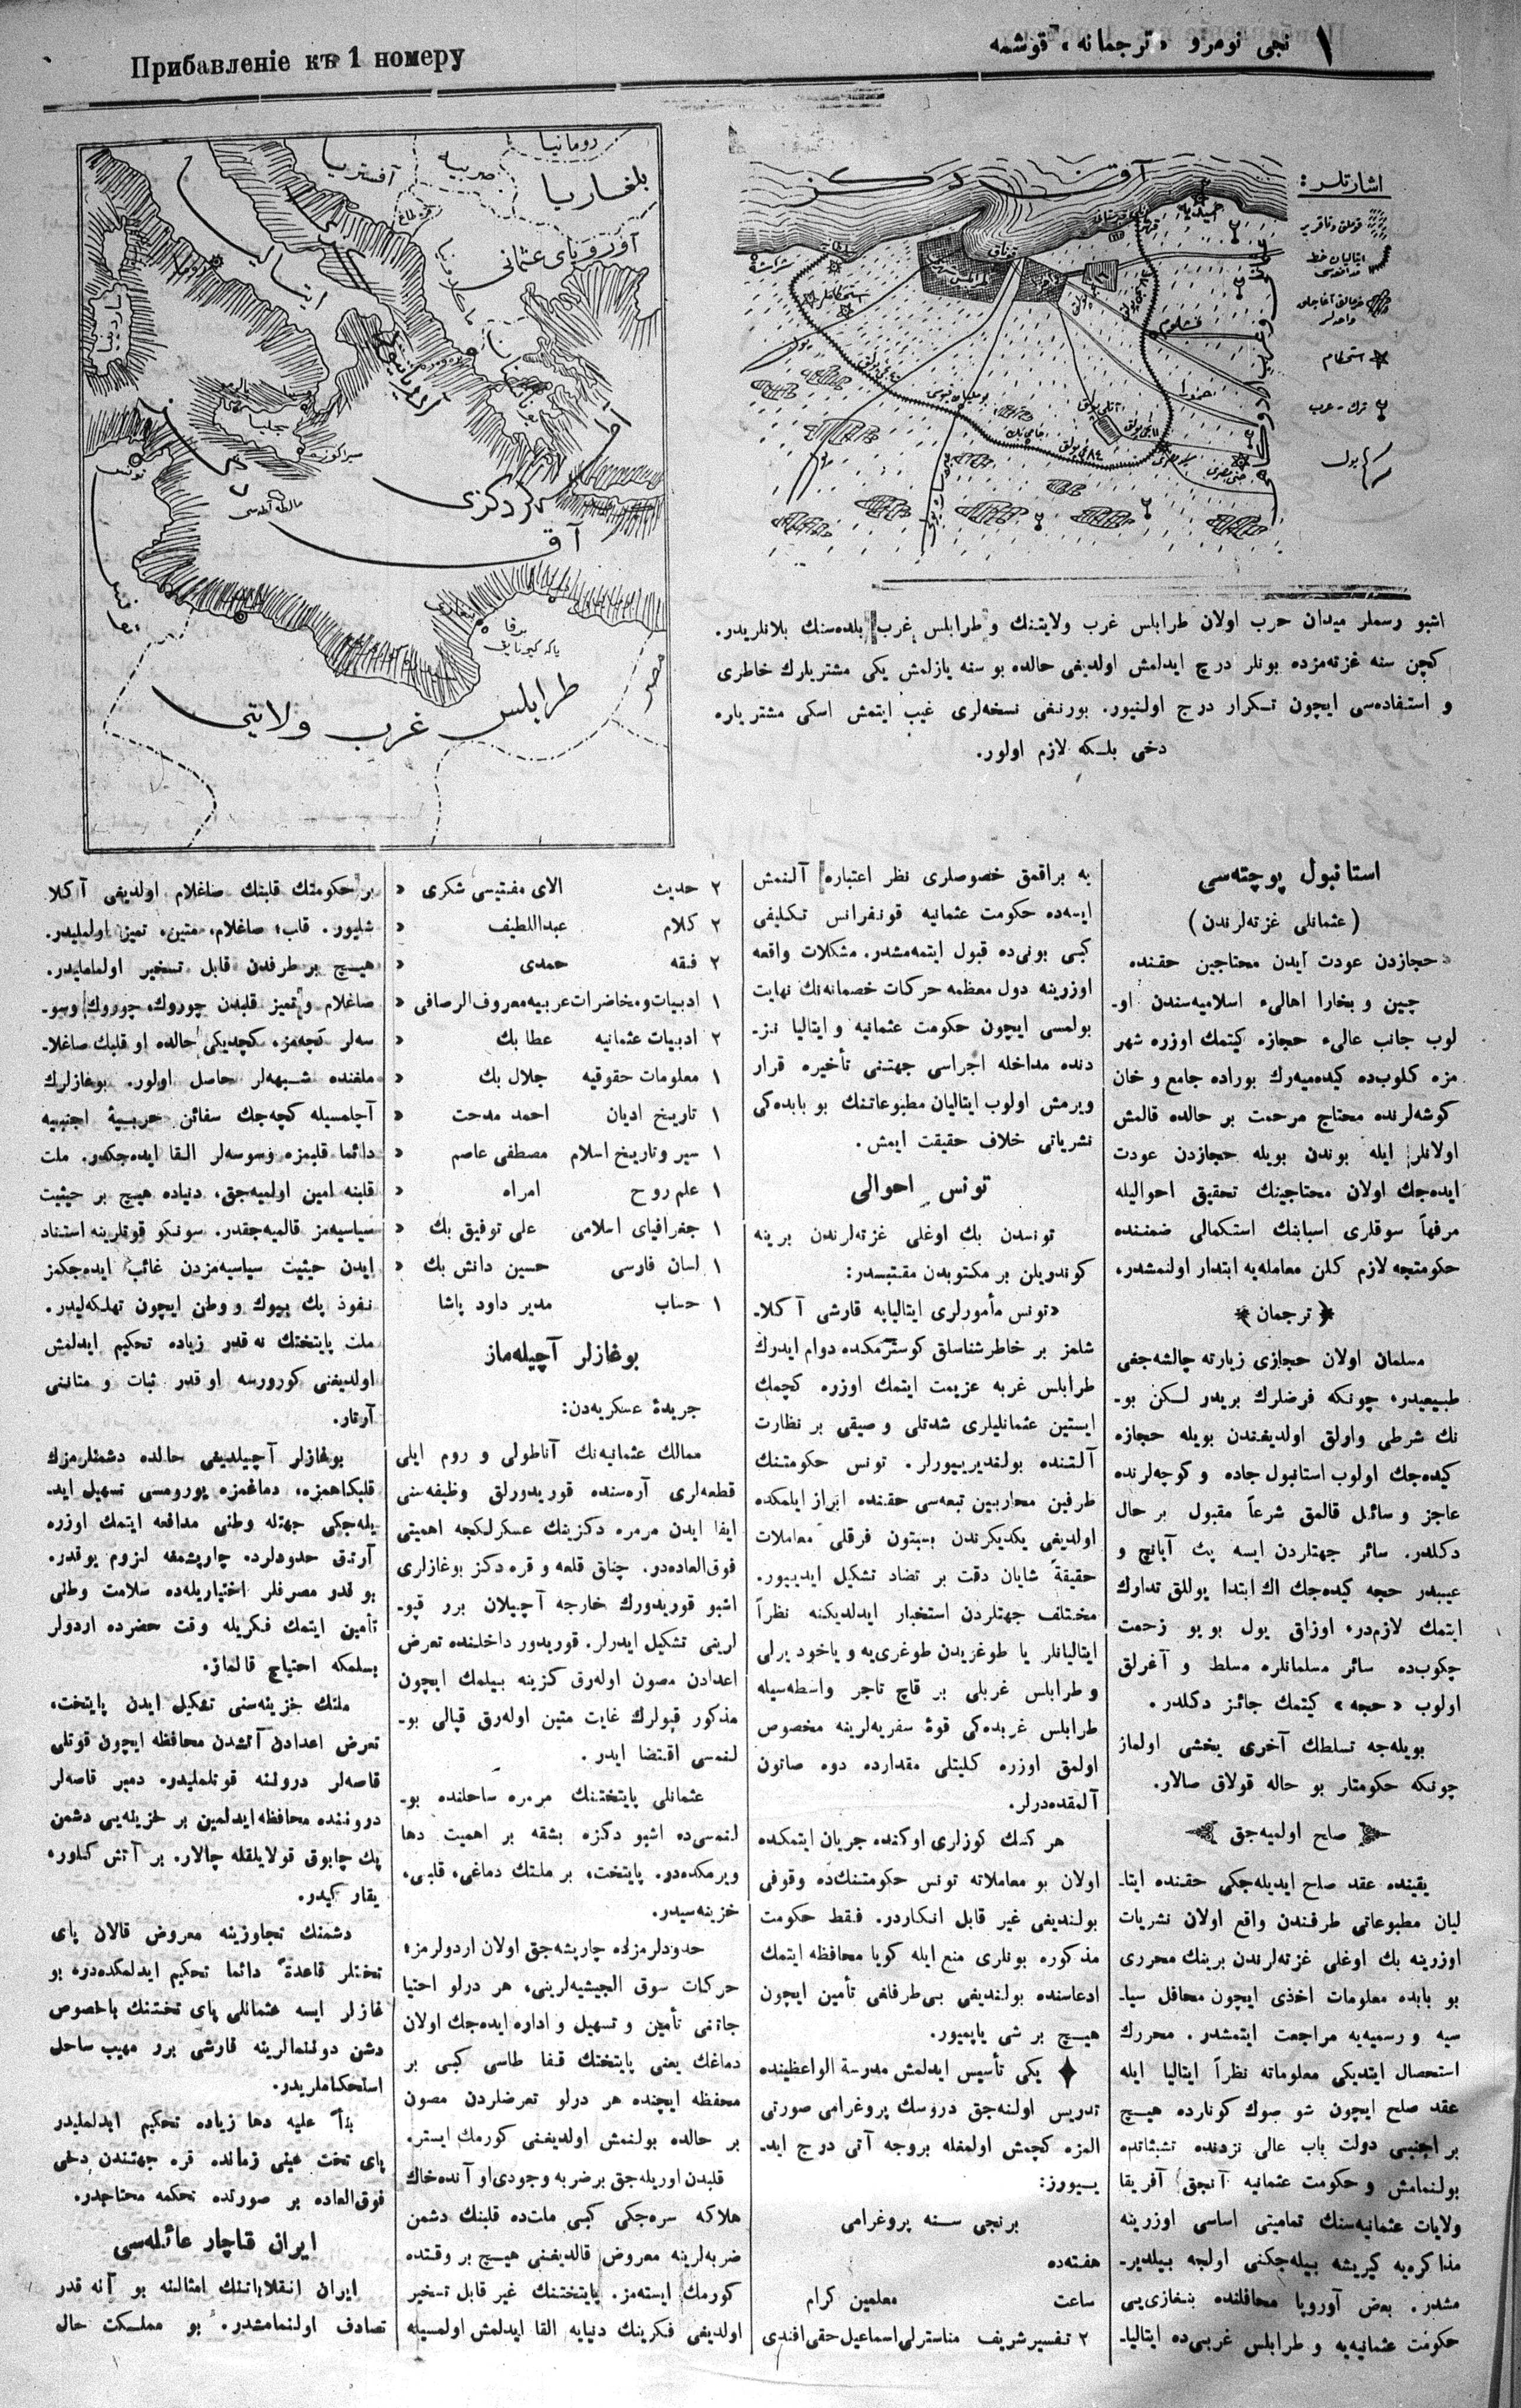 Прибавленіе къ 1 номеру
۱ نجی نومرو «ترجمانه» قوشمه
اشارتلر:
استحکام
ترک - عرب
یول
رومانیا
صربیه
آفستریا
بلغاریا
قره طاغ
آوروپای عثمانی
ایتالیا
سیراکوزه
تونس
مالطه آطه‌سی
آق دکز
بنغازی
برقا
مصر
طرابلس غرب ولایتی
اشبو رسملر میدان حرب اولان طرابلس غرب ولایتنك و طرابلس غرب بلده‌سنك پلانلریدر.
کچن سنه غزته‌مزده بونلر درج ایدلمش اولدیغی حالده بو سنه یازلمش یکی مشتریلرك خاطری
و استفاده‌سی ایچون تکرار درج اولنیور. بورنغی نسخه‌لری غیب ایتمش اسکی مشتریلره
دخی بلکه لازم اولور.
استانبول پوچته‌سی
(عثمانلی غزته‌لرندن)
«حجازدن عودت ایدن محتاجین حقنده
چین و بخارا اهالیء اسلامیه‌سندن او-
لوب جانب عالیء حجازه کیتمك اوزره شهر
مزه کلوب‌ده کیده‌میه‌رك بوراده جامع و خان
کوشه‌لرنده محتاج مرحمت بر حالده قالمش
اولانلر ایله بوندن بویله حجازدن عودت
ایده‌جك اولان محتاجینك تحقیق احوالیله
مرفهاً سوقلری اسبابنك استکمالی ضمننده
حکومتجه لازم کلن معامله‌یه ابتدار اولنمشدر،
﴿ ترجمان ﴾
مسلمان اولان حجازی زیارته چالشه‌جغی
طبیعیدر، چونکه فرضلرك بریدر لکن بو-
نك شرطی وارلق اولدیغندن بویله حجازه
کیده‌جك اولوب استانبول جاده و کوچه‌لرنده
عاجز و سائل قالمق شرعاً مقبول بر حال
دکلدر. سائر جهتلردن ایسه پك آیانچ و
عیبدر حجه کیده‌جك اك ابتدا یوللق تدارك
ایتمك لازم‌در، اوزاق یول بویو زحمت
چکوب‌ده سائر مسلمانلره مسلط و آغرلق
اولوب «حجه» کیتمك جائز دکلدر.
بویله‌جه تسلطك آخری یخشی اولماز
چونکه حکومتلر بو حاله قولاق صالار.
صلح اولمیه‌جق
یقینده عقد صلح ایدیله‌جکی حقنده ایتا-
لیان مطبوعاتی طرفندن واقع اولان نشریات
اوزرینه بك اوغلی غزته‌لرندن برینك محرری
بو بابده معلومات اخذی ایچون محافل سیا-
سیه و رسمیه‌یه مراجعت ایتمشدر. محررك
استحصال ایتدیکی معلوماته نظراً ایتالیا ایله
عقد صلح ایچون شو صوك کونلرده هیچ
بر اجنبی دولت باب عالی نزدنده تشبثاتده
بولنمامش و حکومت عثمانیه آنجق آفریقا
ولایات عثمانیه‌سنك تمامیتی اساسی اوزرینه
مذاکره‌یه کیریشه بیله‌جکنی اولجه بیلدیر-
مشدر. بعض آوروپا محافلنده بنغازی‌یی
حکومت عثمانیه‌یه و طرابلس غربی‌ده ایتالیا-
یه براقمق خصوصلری نظر اعتباره آلنمش
ایسه‌ده حکومت عثمانیه قونفرانس تکلیفی
کبی بونی‌ده قبول ایتمه‌مشدر. مشکلات واقعه
اوزرینه دول معظمه حرکات خصمانه‌نك نهایت
بولمسی ایچون حکومت عثمانیه و ایتالیا نز-
دنده مداخله اجراسی جهتنی تأخیره قرار
ویرمش اولوب ایتالیان مطبوعاتنك بو بابده‌کی
نشریاتی خلاف حقیقت ایمش.
تونس احوالی
تونسدن بك اوغلی غزته‌لرندن برینه
کوندریلن بر مکتوبدن مقتبسدر:
«تونس مأمورلری ایتالیایه قارشی آکلا-
شلمز بر خاطرشناسلق کوسترمکده دوام ایدرك
طرابلس غربه عزیمت ایتمك اوزره کچمك
ایستین عثمانلیلری شدتلی و صیقی بر نظارت
آلتنده بولندیرییورلر. تونس حکومتنك
طرفین محاربین تبعه‌سی حقنده ابراز ایلمکده
اولدیغی یکدیکرندن بسبتون فرقلی معاملات
حقیقةً شایان دقت بر تضاد تشکیل ایدییور.
مختلف جهتلردن استخبار ایدلدیکنه نظراً
ایتالیانلر یا طوغریدن طوغری‌یه و یاخود یرلی
و طرابلس غربلی بر قاچ تاجر واسطه‌سیله
طرابلس غربده‌کی قوۀ سفریه‌لرینه مخصوص
اولمق اوزره کلیتلی مقدارده دوه صاتون
آلمقده‌درلر.
هر کسك کوزلری اوکنده جریان ایتمکده
اولان بو معاملاته تونس حکومتنك‌ده وقوفی
بولندیغی غیر قابل انکاردر. فقط حکومت
مذکوره بونلری منع ایله کویا محافظه ایتمك
ادعاسنده بولندیغی بی‌طرفلغی تأمین ایچون
هیچ بر شی یاپمیور.
✦ یکی تأسیس ایدلمش مدرسة الواعظینده
تدریس اولنه‌جق دروسك پروغرامی صورتی
المزه کچمش اولمغله بروجه آتی درج اید-
ییورز:
برنجی سنه پروغرامی
هفته‌ده
ساعت معلمین کرام
۲ تفسیرشریف مناسترلی اسماعیل حقی افندی
۲ حدیث الای مفتیسی شکری «
۲ کلام عبداللطیف «
۲ فقه حمدی «
۱ ادبیات‌ومخاضرات‌عربیه معروف الرصافی «
۲ ادبیات عثمانیه عطا بك «
۱ معلومات حقوقیه جلال بك «
۱ تاریخ ادیان احمد مدحت «
۱ سیر و تاریخ اسلام مصطفی عاصم «
۱ علم روح امراه «
۱ جغرافیای اسلامی علی توفیق بك «
۱ لسان فارسی حسین دانش بك «
۱ حساب مدیر داود پاشا
بوغازلر آچیله‌ماز
جریدۀ عسکریه‌دن:
ممالك عثمانیه‌نك آناطولی و روم ایلی
قطعه‌لری آره‌سنده قوریدورلق وظیفه‌سنی
ایفا ایدن مرمره دکزینك عسکرلکجه اهمیتی
فوق‌العاده‌در. چناق قلعه و قره دکز بوغازلری
اشبو قوریدورك خارجه آچیلان برر قپو-
لرینی تشکیل ایدرلر. قوریدور داخلنده تعرض
اعدادن مصون اوله‌رق کزینه بیلمك ایچون
مذکور قپولرك غایت متین اوله‌رق قپالی بو-
لنمسی اقتضا ایدر.
عثمانلی پایتختنك مرمره ساحلنده بو-
لنمسی‌ده اشبو دکزه بشقه بر اهمیت دها
ویرمکده‌در. پایتخت، بر ملتك دماغی، قلبی،
خزینه‌سیدر.
حدودلرمزده چارپشه‌جق اولان اردولرمز؛
حرکات سوق الجیشیه‌لرینی، هر درلو احتیا
جاتنی تأمین و تسهیل و اداره ایده‌جك اولان
دماغك یعنی پایتختك قفا طاسی کبی بر
محفظه ایچنده هر درلو تعرضلردن مصون
بر حالده بولنمش اولدیغنی کورمك ایستر.
قلبدن اوریله‌جق بر ضربه وجودی او آنده خاك
هلاکه سره‌جکی کبی ملت‌ده قلبنك دشمن
ضربه‌لرینه معروض قالدیغنی هیچ بر وقتده
کورمك ایسته‌مز. پایتختنك غیر قابل تسخیر
اولدیغی فکرینك دنیایه القا ایدلمش اولمسیله
بر حکومتك قلبنك صاغلام اولدیغی آکلا
شلیور. قلب؛ صاغلام، متین، تمیز اولملیدر.
هیچ بر طرفدن قابل تسخیر اولمامالیدر.
صاغلام و تمیز قلبدن چوروك، چوروك وسو-
سه‌لر کچه‌مز، کچدیکی حالده او قلبك صاغلا-
ملغنده شبهه‌لر حاصل اولور. بوغازلرك
آچلمسیله کچه‌جك سفائن حربیۀ اجنبیه
دائما قلبمزه وسوسه‌لر القا ایده‌جکدر. ملت
قلبنه امین اولمیه‌جق، دنیاده هیچ بر حیثیت
سیاسیه‌مز قالمیه‌جقدر. سونکو قوتلرینه استناد
ایدن حیثیت سیاسیه‌مزدن غائب ایده‌جکمز
نفوذ پك بیوك و وطن ایچون تهلکه‌لیدر.
ملت پایتختنك نه قدر زیاده تحکیم ایدلمش
اولدیغنی کورورسه او قدر ثبات و متانتی
آرتار.
بوغازلر آچیلدیغی حالده دشمنلرمزك
قلبکاهمزه، دماغمزه یورومسی تسهیل اید-
یله‌جکی جهتله وطنی مدافعه ایتمك اوزره
آرتق حدودلرده چارپشمغه لزوم یوقدر.
بو قدر مصرفلر اختیاریله‌ده سلامت وطنی
تأمین ایتمك فکریله وقت حضرده اردولر
بسلمکه احتیاج قالماز.
ملتك خزینه‌سنی تشکیل ایدن پایتخت،
تعرض اعدادن آتشدن محافظه ایچون قوتلی
قاصه‌لر دروننه قونلملیدر، دمیر قاصه‌لر
دروننده محافظه ایدلمین بر خزینه‌یی دشمن
پك چابوق قولایلقله چالار. بر آتش کلور،
یقار کیدر.
دشمنك تجاوزینه معروض قالان پای
تختلر قاعدةً دائما تحکیم ایدلمکده‌در، بو
غازلر ایسه عثمانلی پای تختنك باخصوص
دشمن دونمالرینه قارشی برر مهیب ساحل
استحکاملریدر.
بناً علیه دها زیاده تحکیم ایدلملیدر
پای تخت عینی زمانده قره جهتندن دخی
فوق‌العاده بر صورتده تحکمه محتاجدر.
ایران قاچار عائله‌سی
ایران انقلاباتنك امثالنه بو آنه قدر
تصادف اولنمامشدر. بو مملکت حال